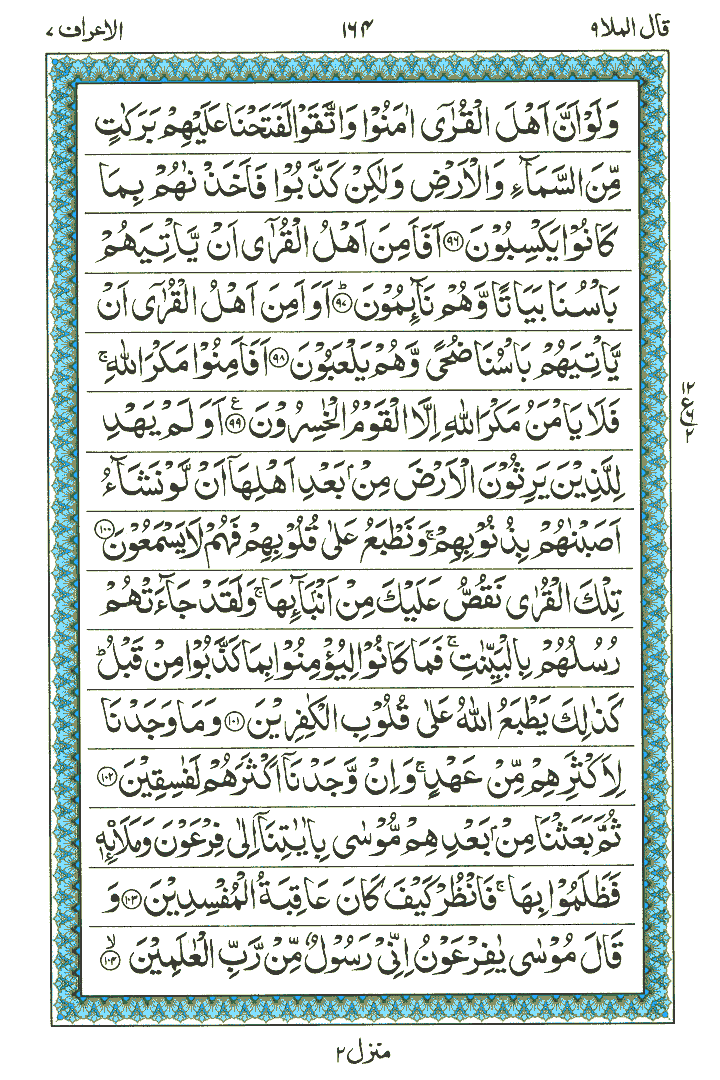 قال الملا ٩ ١٦٤ الاعراف ٧
وَلَوْ اَنَّ اَهْلَ الْقُرٰٓى اٰمَنُوْا وَاتَّقَوْا لَفَتَحْنَا عَلَيْهِمْ بَرَكٰتٍ
مِّنَ السَّمَآءِ وَالْاَرْضِ وَلٰكِنْ كَذَّبُوْا فَاَخَذْنٰهُمْ بِمَا
كَانُوْا يَكْسِبُوْنَ ﴿٩٦﴾ اَفَاَمِنَ اَهْلُ الْقُرٰٓى اَنْ يَّاْتِيَهُمْ
بَاْسُنَا بَيَاتًا وَّهُمْ نَآئِمُوْنَ ؕ﴿٩٧﴾ اَوَ اَمِنَ اَهْلُ الْقُرٰٓى اَنْ
يَّاْتِيَهُمْ بَاْسُنَا ضُحًى وَّهُمْ يَلْعَبُوْنَ ﴿٩٨﴾ اَفَاَمِنُوْا مَكْرَ اللّٰهِ ۚ
فَلَا يَاْمَنُ مَكْرَ اللّٰهِ اِلَّا الْقَوْمُ الْخٰسِرُوْنَ ﴿٩٩﴾ ع اَوَلَمْ يَهْدِ
لِلَّذِيْنَ يَرِثُوْنَ الْاَرْضَ مِنْۢ بَعْدِ اَهْلِهَاۤ اَنْ لَّوْ نَشَآءُ
اَصَبْنٰهُمْ بِذُنُوْبِهِمْ ۚ وَنَطْبَعُ عَلٰى قُلُوْبِهِمْ فَهُمْ لَا يَسْمَعُوْنَ ﴿١٠٠﴾
تِلْكَ الْقُرٰى نَقُصُّ عَلَيْكَ مِنْ اَنْۢبَآئِهَا ۚ وَلَقَدْ جَآءَتْهُمْ
رُسُلُهُمْ بِالْبَيِّنٰتِ ۚ فَمَا كَانُوْا لِيُؤْمِنُوْا بِمَا كَذَّبُوْا مِنْ قَبْلُ ؕ
كَذٰلِكَ يَطْبَعُ اللّٰهُ عَلٰى قُلُوْبِ الْكٰفِرِيْنَ ﴿١٠١﴾ وَمَا وَجَدْنَا
لِاَكْثَرِهِمْ مِّنْ عَهْدٍ ۚ وَاِنْ وَّجَدْنَاۤ اَكْثَرَهُمْ لَفٰسِقِيْنَ ﴿١٠٢﴾
ثُمَّ بَعَثْنَا مِنْۢ بَعْدِهِمْ مُّوْسٰى بِاٰيٰتِنَاۤ اِلٰى فِرْعَوْنَ وَمَلَا۟ئِهٖ
فَظَلَمُوْا بِهَا ۚ فَانْظُرْ كَيْفَ كَانَ عَاقِبَةُ الْمُفْسِدِيْنَ ﴿١٠٣﴾ وَ
قَالَ مُوْسٰى يٰفِرْعَوْنُ اِنِّىْ رَسُوْلٌ مِّنْ رَّبِّ الْعٰلَمِيْنَ ۙ﴿١٠٤﴾
١٢
ع
٢
منزل ٢